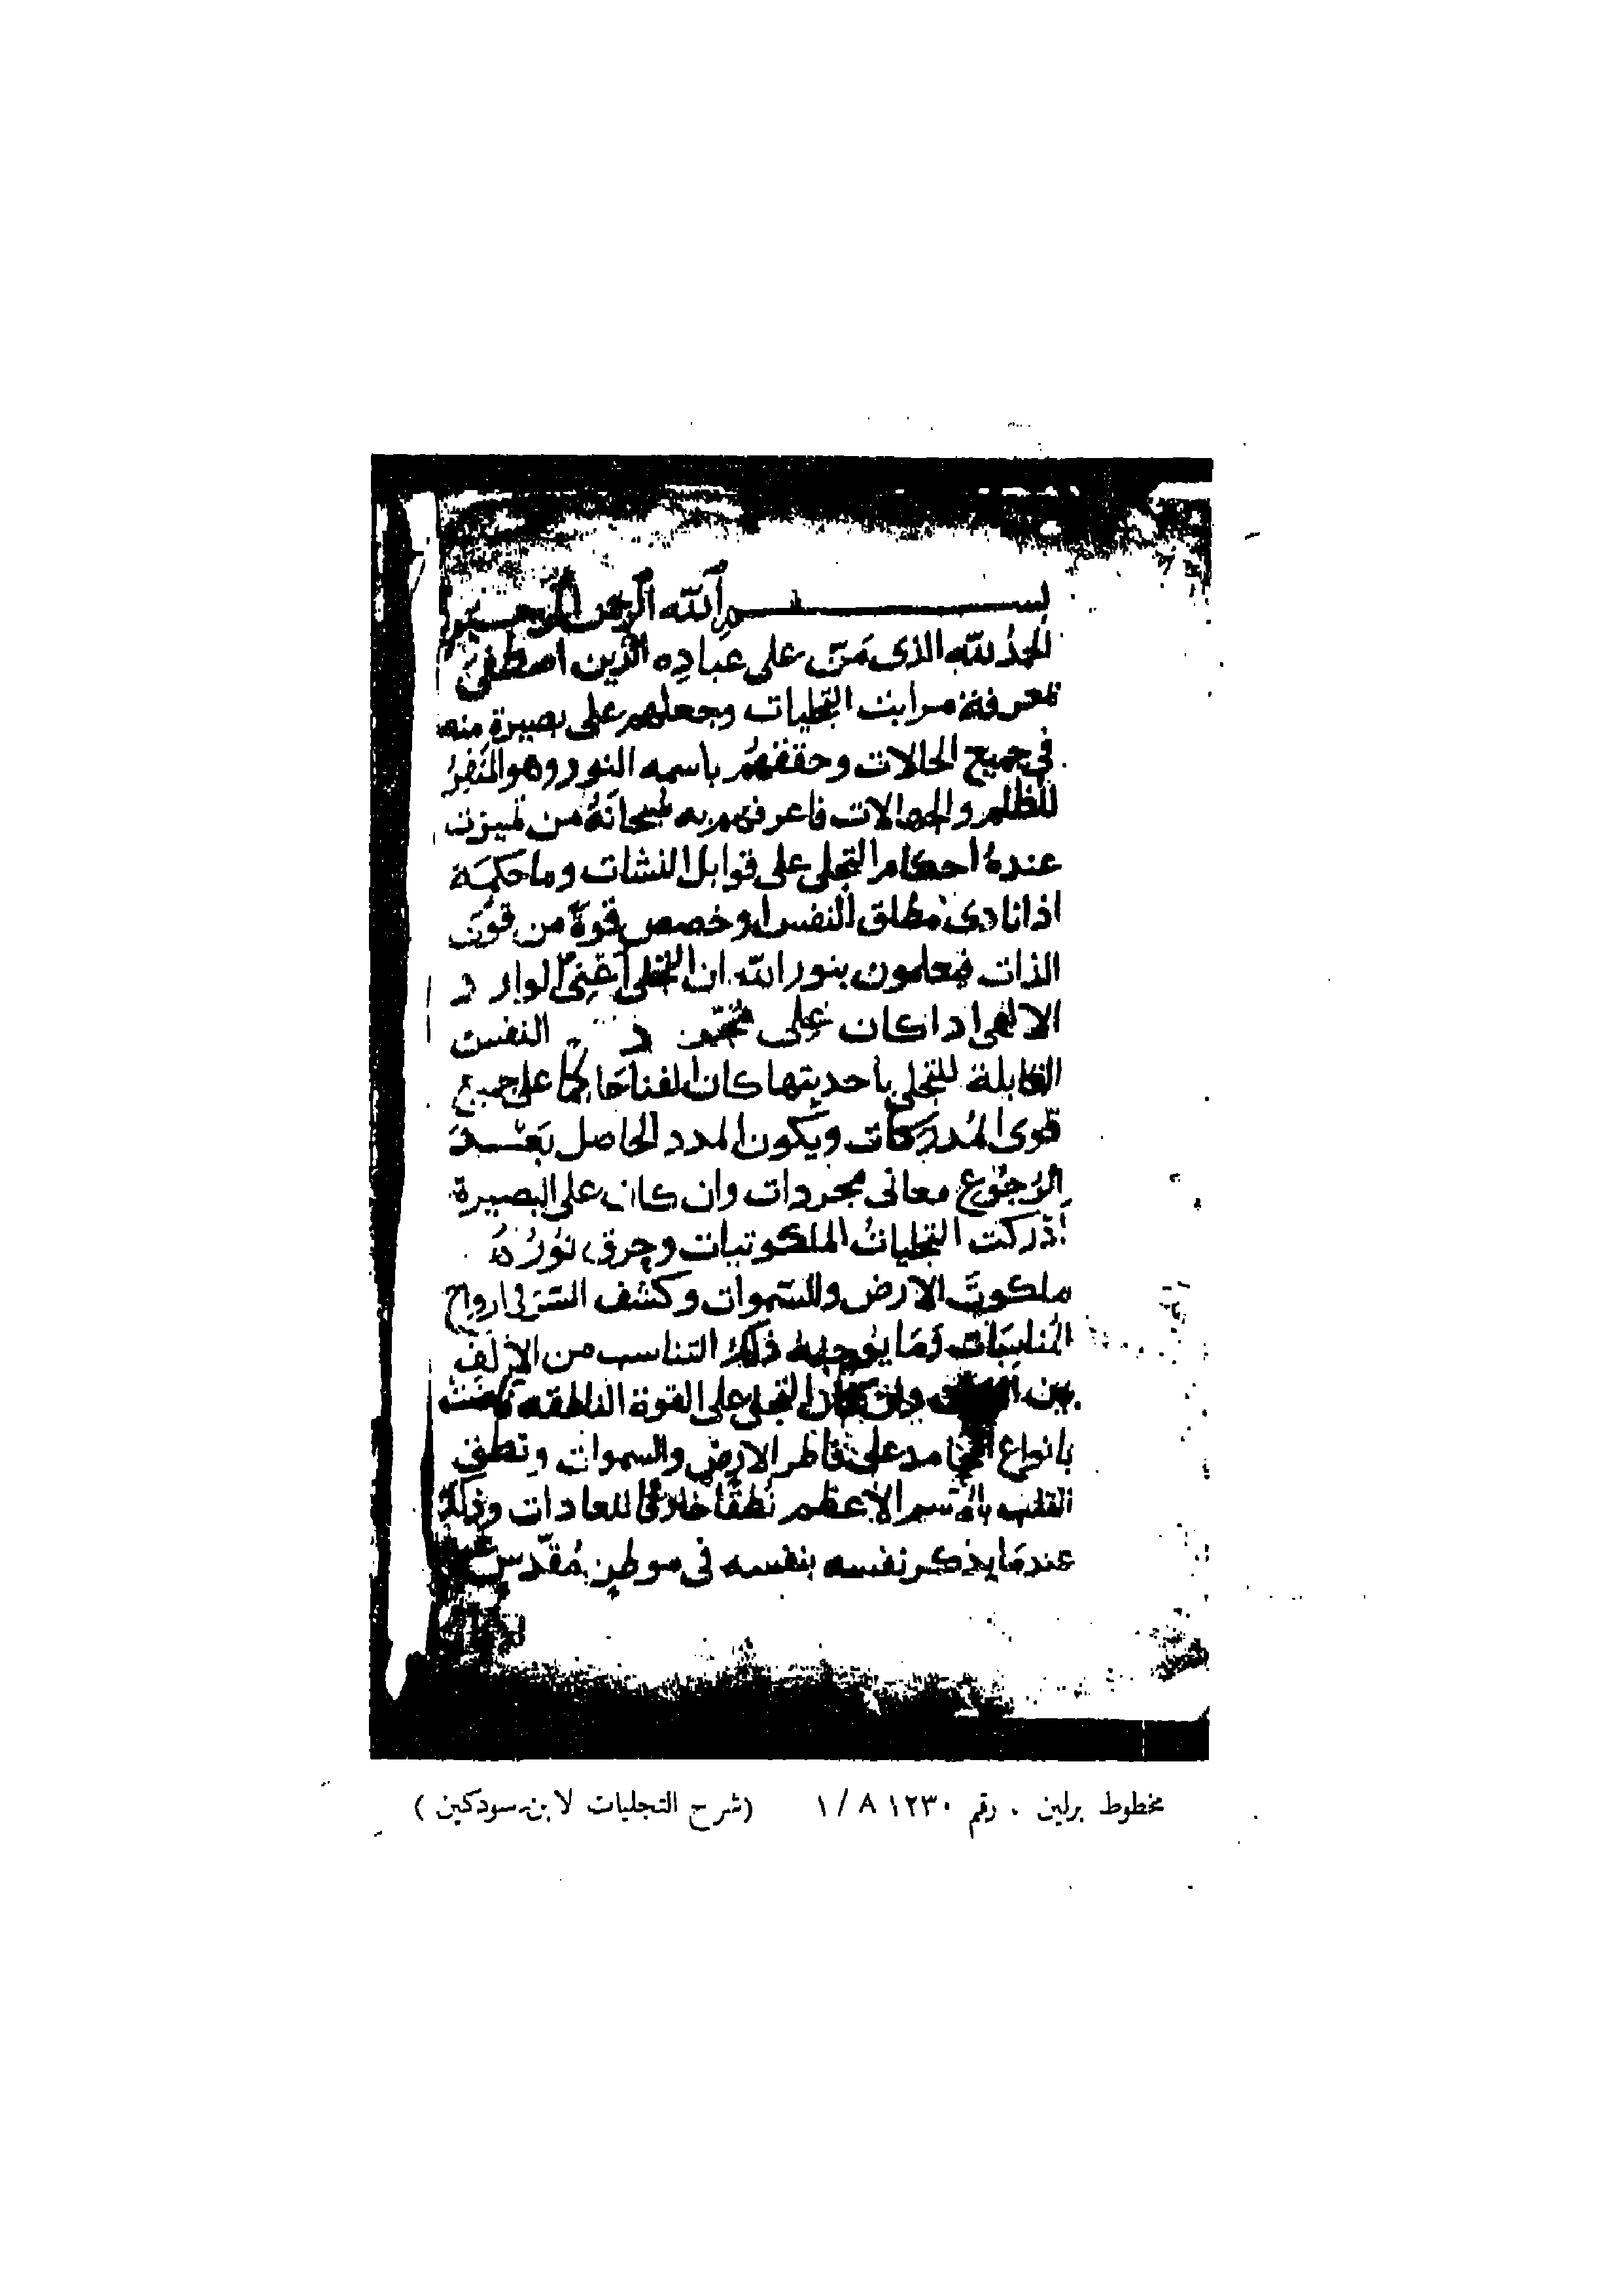 بسم الله الرحمن الرحيم
الحمدُ لله الذى مَنّ على عباده الذين اصطفى
بمعرفة مراتب التجليات وجعلهم على بصيرة منه
فى جميع الحالات وحققهُم باسمه النور وهو المُنَفِّرُ
للظلم والجهالات فاعرفهم به سُبحانَهُ من تميزت
عندهُ احكام التجلى على قوابل النشات وما حكمَة
اذا نادى مطلق النفس او خصص قوةً من قوَى
الذات فيعلمون بنور الله ان التجلى اَعْنِى الوارد
الالهى اذا كان على النفس
القابلة للتجلى باحديتها كان الفنا حَاكِمًا على جميع
قوى المُدرَكَات ويكون المدد الحاصل بَعْدَ
الرُجُوع معانى مجردات وان كان على البصيرة
اَدْرَكت التجلياتُ الملكوتيات وخرق نوُرُهُ
ملكوتَ الارض والسّموات وكشف السّر فى ارواح
المُناسَبَات وَمَا يوُجبه ذلك التناسب من
بين وان كان التجلى على القوة الناطقه
بانواع المحامد على فاطر الارض والسموات ونطق
القلب بالاسم الاعظم نُطقًا خارقًا للعادات وذلك
عندمَا يذكر نفسه بنفسه فى موطن مُقدّس
مخطوط برلين . رقم ١٢٣٠ ٨ / ١ (شرح التجليات لابن سودكين)